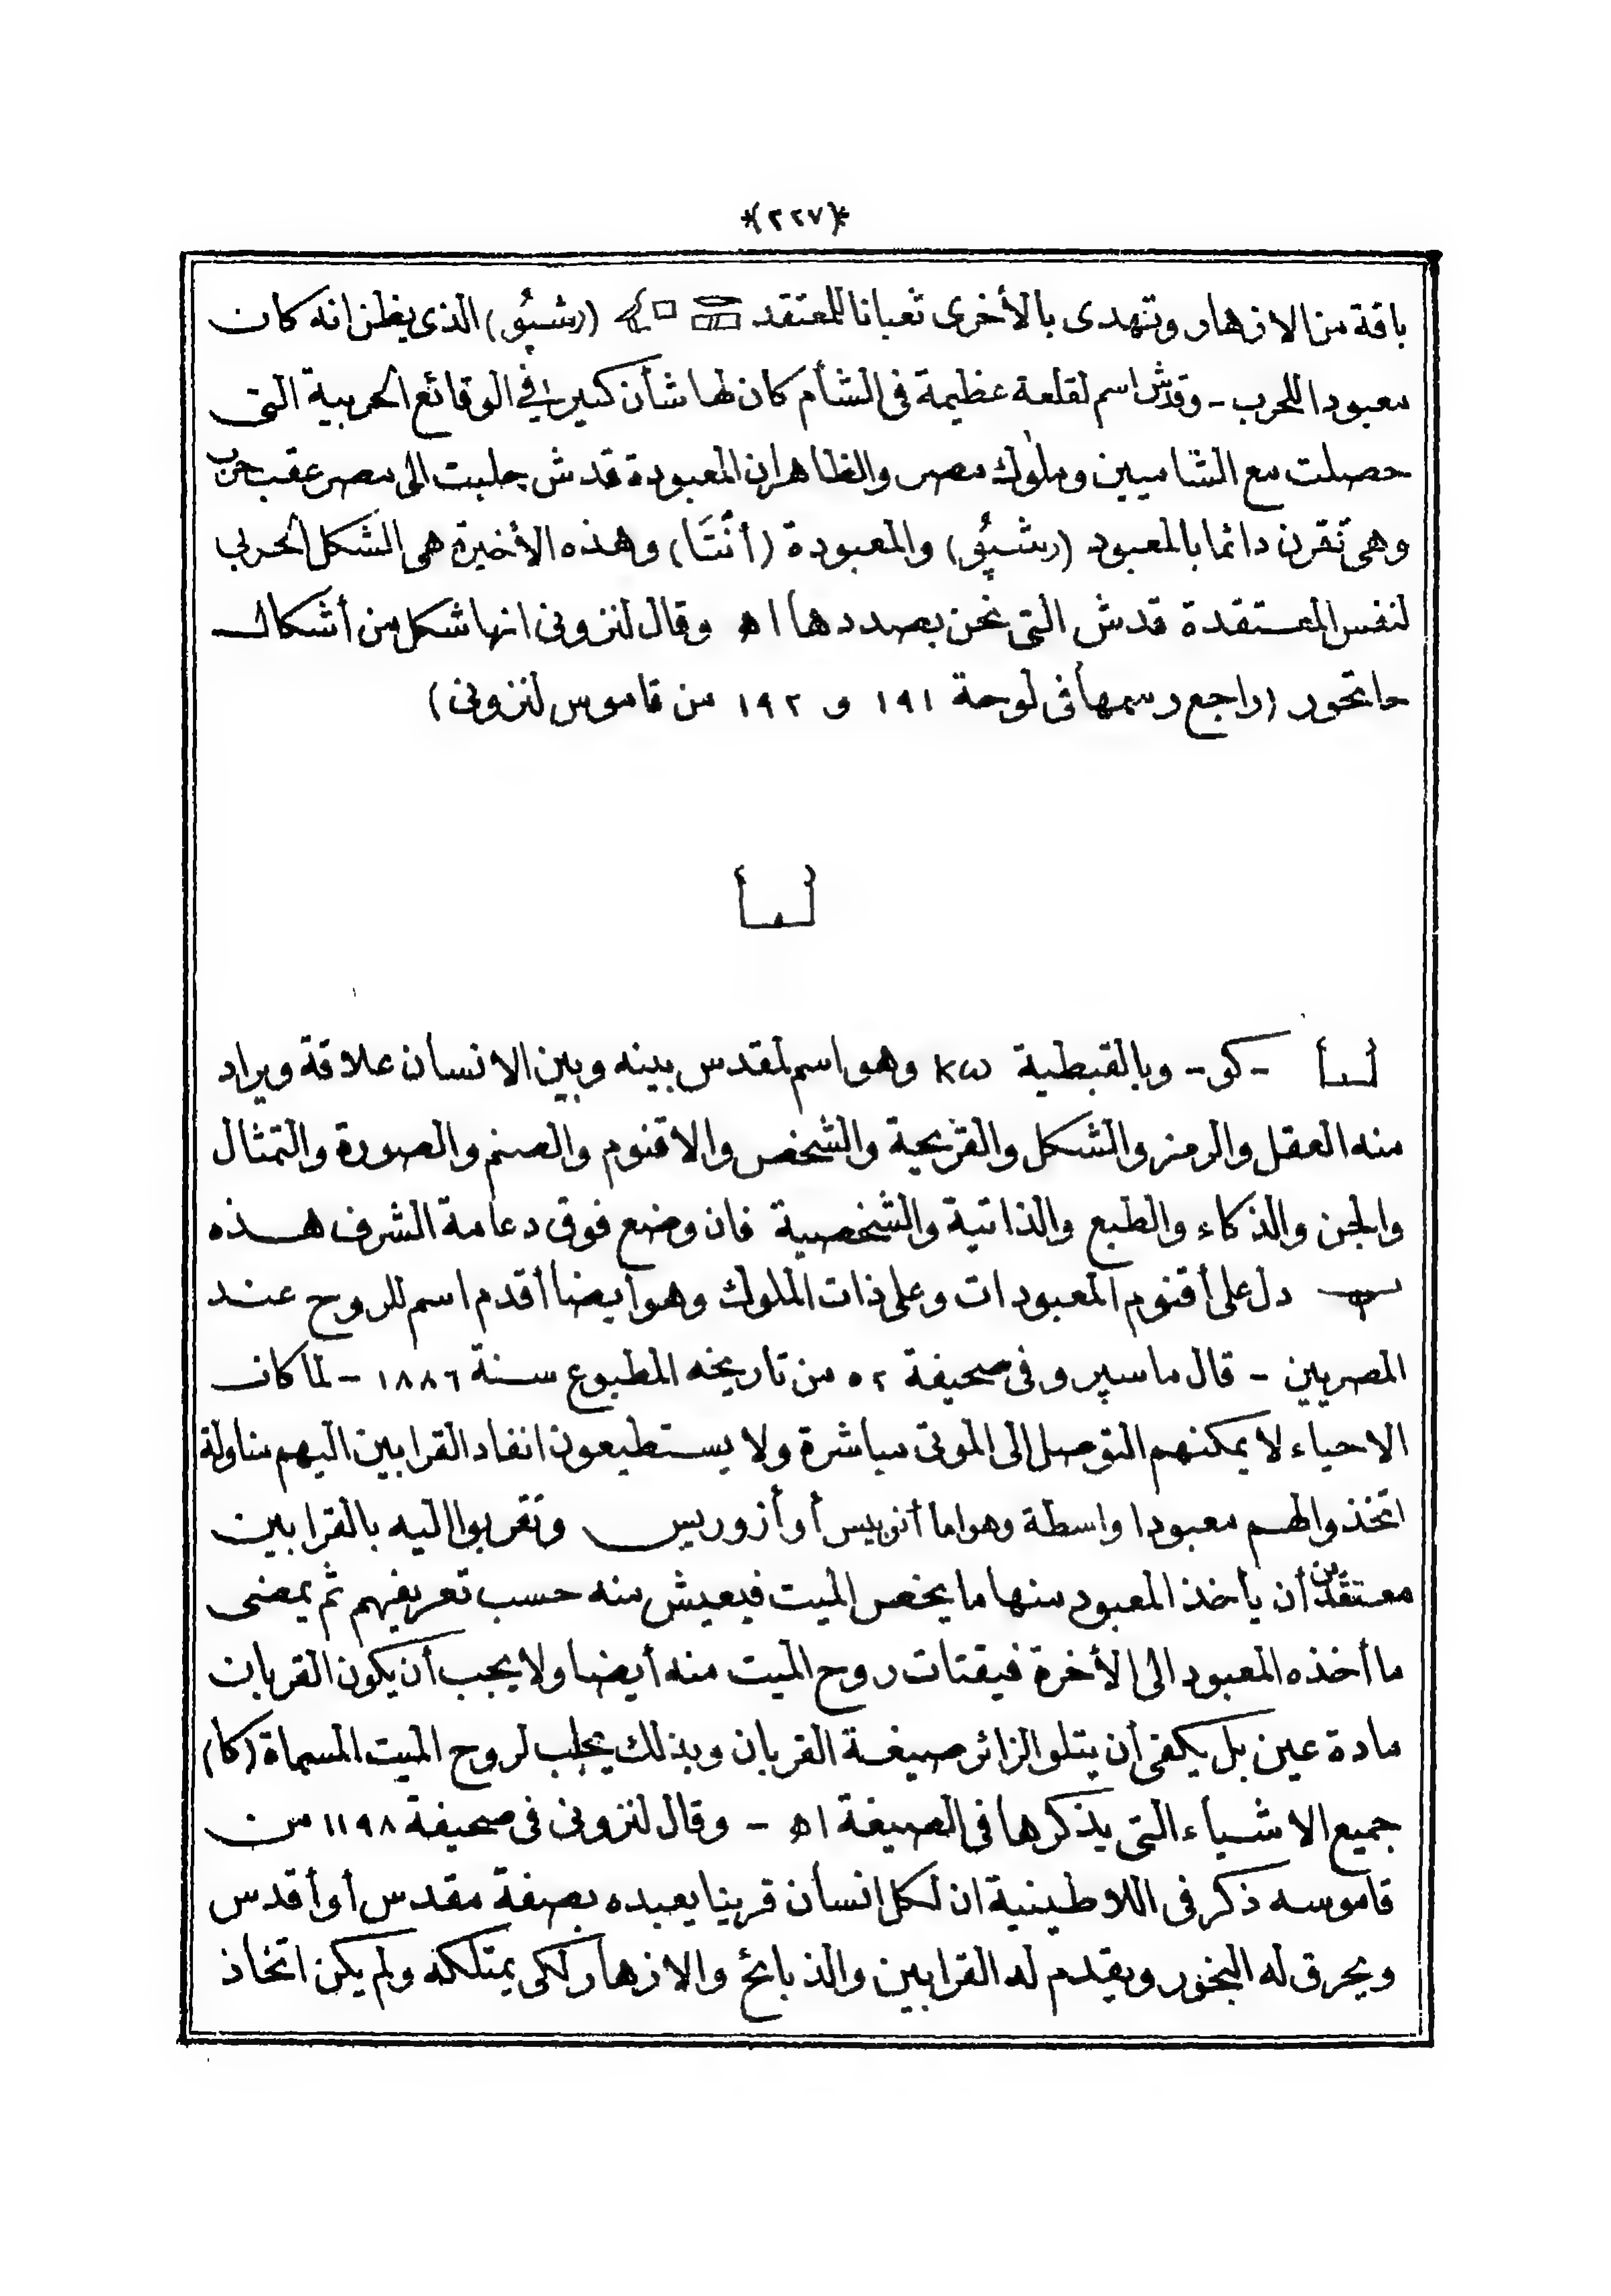 *(٢٢٧)*
باقة من الازهار وتهدى بالأخرى ثعبانا للمعتقد (رشپُو) الذى يظن انه كان
معبودا للحرب - وقدش اسم لقلعة عظيمة فى الشأم كان لها شأن كبير فى الوقائع الحربية التى
حصلت مع الشاميين وملوك مصر والظاهر ان المعبودة قدش جلبت الى مصر عقب حرب
وهى تقرن دائما بالمعبود (رشپُو) والمعبودة (أنْتَا) وهذه الأخيرة هى الشكل الحربى
لنفس المعتقدة قدش التى نحن بصددها اه وقال لنزونى انها شكل من أشكال
حاتحور (راجع رسمها فى لوحة ١٩١ و ١٩٢ من قاموس لنزونى)
- كو - وبالقبطية ⲕⲱ وهو اسم لمقدس بينه وبين الانسان علاقة ويراد
منه العقل والرمز والشكل والقريحة والشخص والاقنوم والصنم والصورة والتمثال
والجن والذكاء والطبع والذاتية والشخصية فان وضع فوق دعامة الشرف هذه
دل على أقنوم المعبودات وعلى ذات الملوك وهو أيضا أقدم اسم للروح عند
المصريين - قال ماسپرو فى صحيفة ٥٢ من تاريخه المطبوع سنة ١٨٨٦ - لما كان
الاحياء لا يمكنهم التوصل الى الموتى مباشرة ولا يستطيعون انفاد القرابين اليهم مناولة
اتخذوا لهم معبودا واسطة وهو اما أنوبيس أو أزوريس وتقربوا اليه بالقرابين
معتقدين أن يأخذ المعبود منها ما يخص الميت فيعيش منه حسب تعريفهم ثم يمضى
ما أخذه المعبود الى الأخرة فيقتات روح الميت منه أيضا ولا يجب أن يكون القربان
مادة عين بل يكفى أن يتلو الزائر صيغة القربان وبذلك يجلب لروح الميت المسماة (كا)
جميع الاشياء التى يذكرها فى الصيغة اه - وقال لنزونى فى صحيفة ١١٩٨ من
قاموسه ذكر فى اللاطينية ان لكل انسان قرينا يعبده بصفة مقدس أو أقدس
ويحرق له البخور ويقدم له القرابين والذبائح والازهار لكى يمتلكه ولم يكن اتخاذ